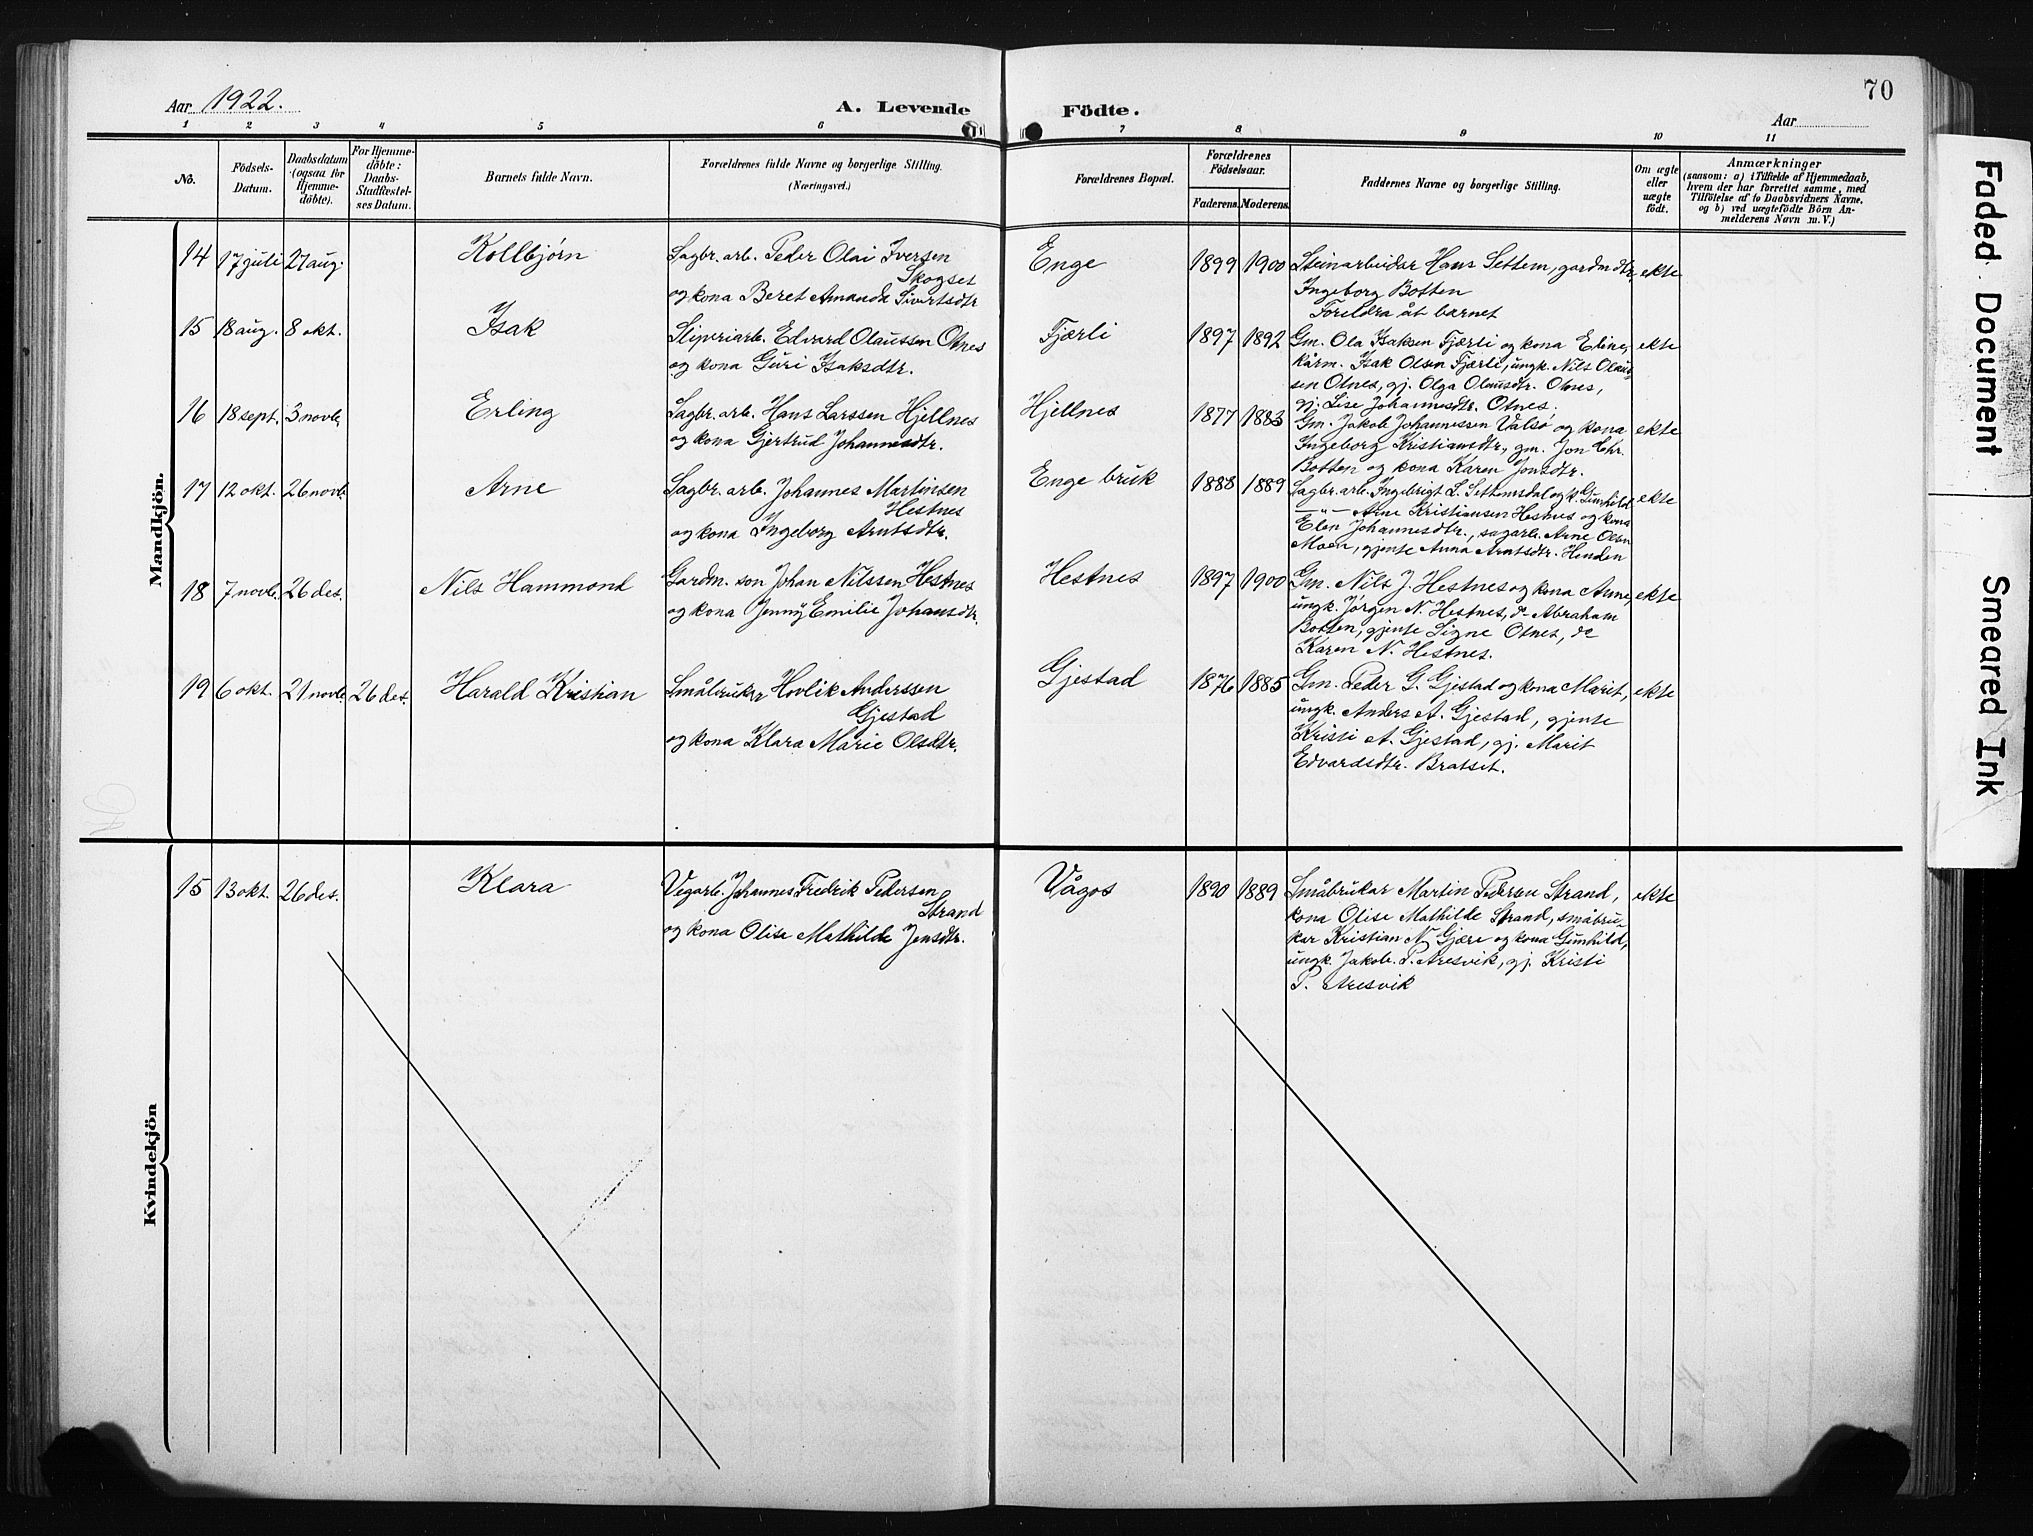 70
Aar 1922.
A. Levende Födte.
Aar
1 2 3 4 5 6 7 8 9 10 11
No.
Födsels-
Datum.
Daabsdatum
(ogsaa for
Hjemme-
døbte).
For Hjemme-
døbte:
Daabs-
Stadfæstel-
ses Datum.
Barnets fulde Navn.
Forældrenes fulde Navne og borgerlige Stilling.
(Næringsvei.)
Forældrenes Bopæl.
Forældrenes
Födselsaar.
Faderens.
Moderens.
Faddernes Navne og borgerlige Stilling.
Om ægte
eller
uægte
født.
Anmærkninger
(saasom: a) i Tilfælde af Hjemmedaab,
hvem der har forrettet samme, med
Tilföielse af to Daabsvidners Navne,
og b) ved uægtefödte Börn An-
melderens Navn m. V.)
Mandkjön.
14 17 juli 27 aug. Kollbjørn
Sagbr. arb. Peder Olai Iversen
Skogset
og kona Beret Amanda Sivertsdtr
Enge 1899 1900
Steinarbeidar Hans Settem, gardm dtr.
Ingeborg Botten
Foreldra åt barnet
ekte
15 18 aug. 8 okt. Isak
Sliperiarb. Edvard Olaussen Otnes
og kona Guri Isaksdtr.
Fjærli 1897 1892
Gm. Ola Isaksen Fjærli og kona Eline,
kårm. Isak Olsen Fjærli, ungk. Nils Olaus-
sen Otnes, gj. Olga Olausdtr. Otnes,
gj. Lise Johannesdtr. Otnes.
ekte
16 18 sept. 3 novbr. Erling
Sagbr. arb. Hans Larssen Hjellnes
og kona Gjertrud Johannesdtr.
Hjellnes 1877 1883
Gm. Jakob Johannessen Valsø og kona
Ingeborg Kristiansdtr, gm. Jon Chr.
Botten og kona Karen Jonsdtr.
ekte
17 12 okt. 26 novb. Arne
Sagbr. arb. Johannes Martinsen
Hestnes
og kona Ingeborg Arntsdtr.
Enge bruk 1888 1889
Sagbr. arb. Ingebrigt L. Settemsdal og k. Gunhild
— " — Arne Kristiansen Hestnes og kona
Elen Johannesdtr., sagarb. Arne Olsen
Moen, gjente Anna Arntsdtr. Henden
ekte
18 7 novb. 26 des. Nils Hammond
Gardm. son Johan Nilssen Hestnes
og kona Jenny Emilie Johansdtr.
Hestnes 1897 1900
Gm. Nils J. Hestnes og kona Anne,
ungk. Jørgen N. Hestnes, do Abraham
Botten, gjente Signe Otnes, do
Karen N. Hestnes.
ekte
19 6 okt. 21 novb. 26 des. Harald Kristian
Småbrukar Hovlik Anderssen
Gjestad
og kona Klara Marie Olsdtr.
Gjestad 1876 1885
Gm. Peder G. Gjestad og kona Marit,
ungk. Anders A. Gjestad, gjente
Kristi A. Gjestad, gj. Marit
Edvardsdtr. Bratset.
ekte
Kvindekjön
15 13 okt. 26 des. Klara
Vegarb. Johannes Fredrik Pedersen
Strand
og kona Olise Mathilde Jensdtr.
Vågos 1890 1889
Småbrukar Martin Pedersen Strand,
kona Olise Mathilde Strand, småbru-
kar Kristian N. Gjære og kona Gunhild,
ungk. Jakob P. Aresvik, gj. Kristi
P. Aresvik
ekte
Faded Document
Smeared Ink